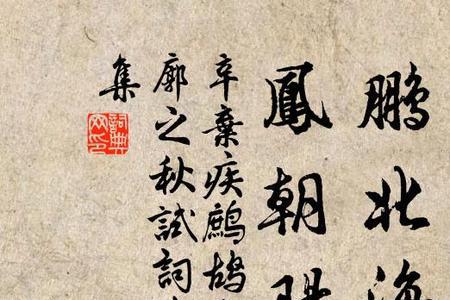 鵬北海
鳳朝陽
辛棄疾鷓鴣
廓之秋試詞
集
詞典
网印